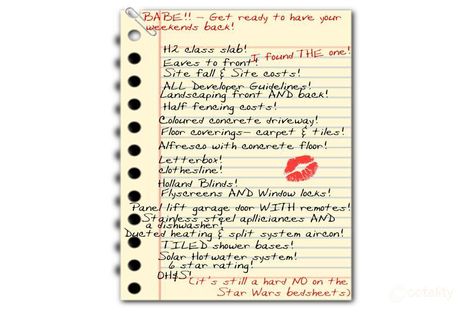 BABE!! – Get ready to have your
weekends back!
H2 class slab!
I found THE one!
Eaves to front!
Site fall & Site costs!
ALL Developer Guidelines!
Landscaping front AND back!
Half fencing costs!
Coloured concrete driveway!
Floor coverings– carpet & tiles!
Alfresco with concrete floor!
Letterbox!
clothesline!
Holland Blinds!
Flyscreens AND Window locks!
Panel lift garage door WITH remotes!
Stainless steel aplliciances AND
a dishwasher!
Ducted heating & split system aircon!
TILED shower bases!
Solar Hotwater system!
6 star rating!
OH&S!
(it's still a hard NO on the
Star Wars bedsheets)
cotality